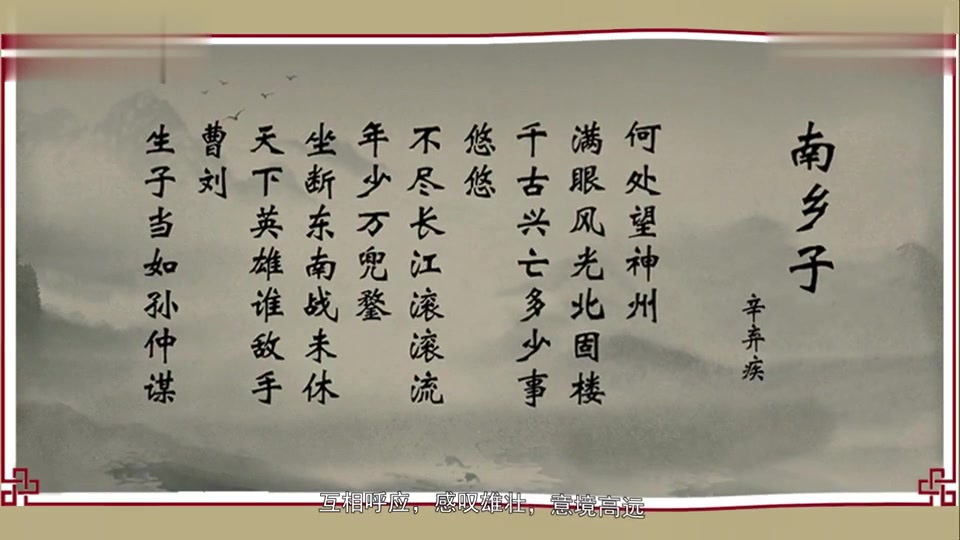 南乡子
辛弃疾
何处望神州
满眼风光北固楼
千古兴亡多少事
悠悠
不尽长江滚滚流
年少万兜鍪
坐断东南战未休
天下英雄谁敌手
曹刘
生子当如孙仲谋
互相呼应，感叹雄壮，意境高远